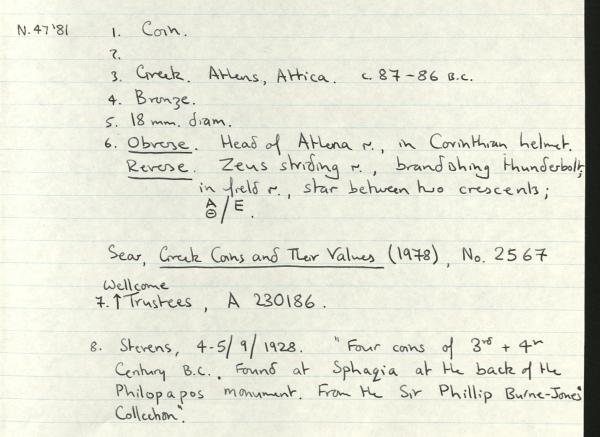 N.47'81 1. Coin.
2.
3. Greek. Athens, Attica. c. 87-86 B.C.
4. Bronze.
5. 18 mm. diam.
6. Obverse. Head of Athena r., in Corinthian helmet.
Reverse. Zeus striding r., brandishing thunderbolt;
in field r., star between two crescents;
A
Θ/E.
Sear, Greek Coins and Their Values (1978), No. 2567
Wellcome
7. ↑Trustees, A 230186.
8. Stevens, 4-5/9/1928. "Four coins of 3rd + 4th
Century B.C. Found at Sphagia at the back of the
Philopapos monument. From the Sir Phillip Burne-Jones
Collection".